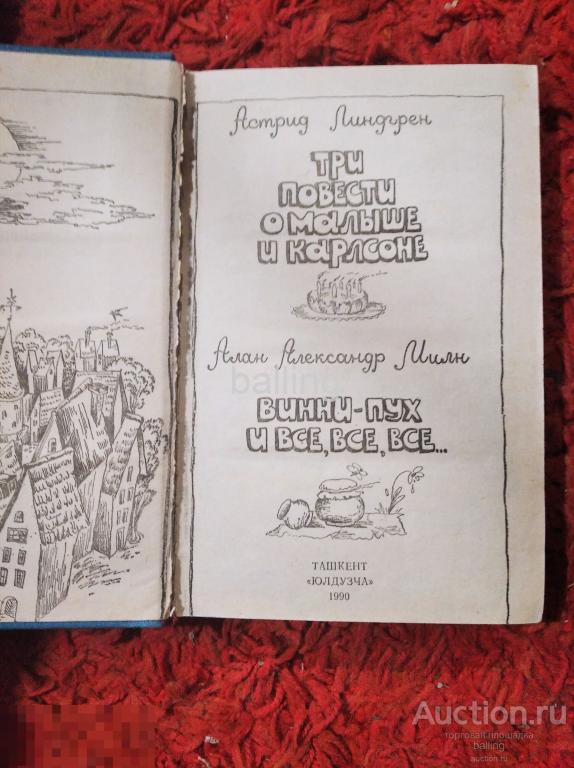 Астрид Линдгрен
ТРИ
ПОВЕСТИ
О МАЛЫШЕ
И КАРЛСОНЕ
Алан Александр Милн
balling
ВИННИ-ПУХ
И ВСЕ, ВСЕ, ВСЕ...
ТАШКЕНТ
«ЮЛДУЗЧА»
1990
Auction.ru
торговая площадка
balling
auction.ru